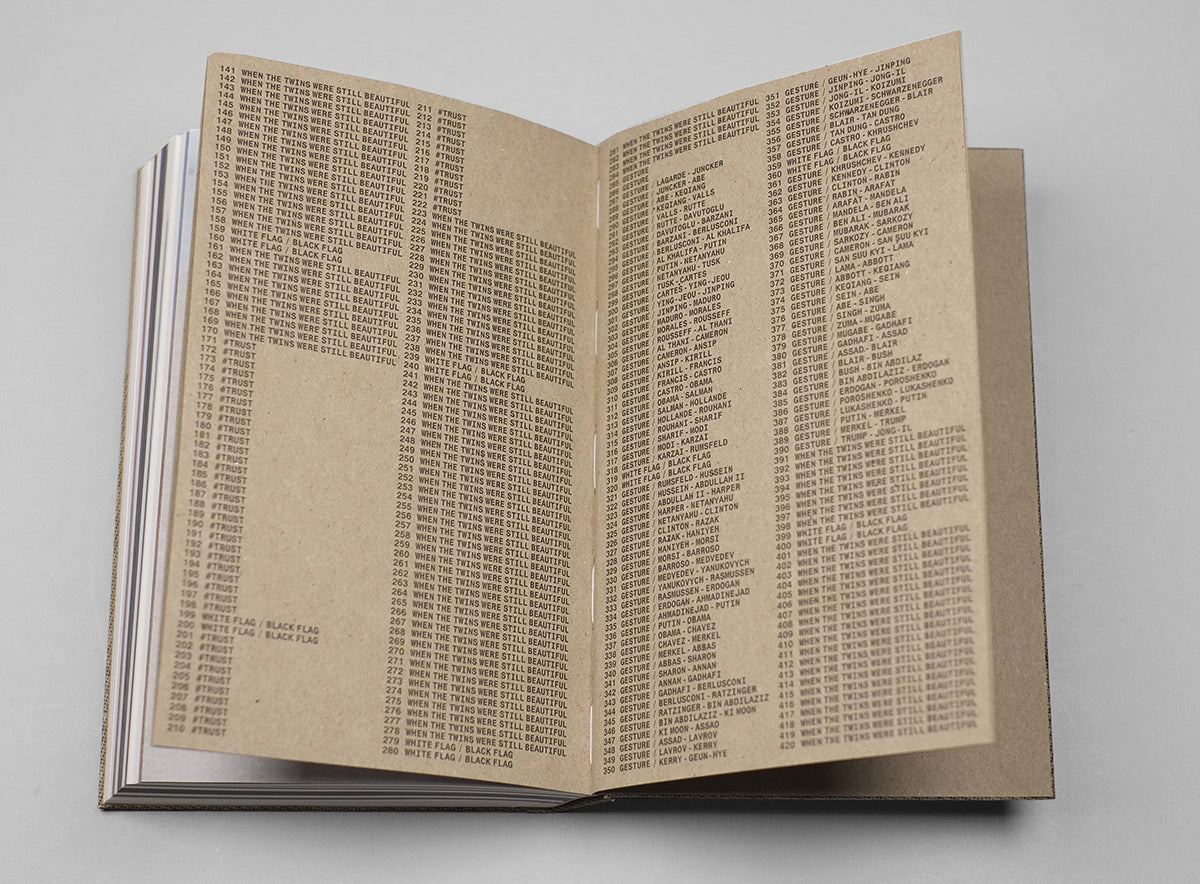 141 WHEN THE TWINS WERE STILL BEAUTIFUL
142 WHEN THE TWINS WERE STILL BEAUTIFUL
143 WHEN THE TWINS WERE STILL BEAUTIFUL
144 WHEN THE TWINS WERE STILL BEAUTIFUL
145 WHEN THE TWINS WERE STILL BEAUTIFUL
146 WHEN THE TWINS WERE STILL BEAUTIFUL
147 WHEN THE TWINS WERE STILL BEAUTIFUL
148 WHEN THE TWINS WERE STILL BEAUTIFUL
149 WHEN THE TWINS WERE STILL BEAUTIFUL
150 WHEN THE TWINS WERE STILL BEAUTIFUL
151 WHEN THE TWINS WERE STILL BEAUTIFUL
152 WHEN THE TWINS WERE STILL BEAUTIFUL
153 WHEN THE TWINS WERE STILL BEAUTIFUL
154 WHEN THE TWINS WERE STILL BEAUTIFUL
155 WHEN THE TWINS WERE STILL BEAUTIFUL
156 WHEN THE TWINS WERE STILL BEAUTIFUL
157 WHEN THE TWINS WERE STILL BEAUTIFUL
158 WHEN THE TWINS WERE STILL BEAUTIFUL
159 WHITE FLAG / BLACK FLAG
160 WHITE FLAG / BLACK FLAG
161 WHEN THE TWINS WERE STILL BEAUTIFUL
162 WHEN THE TWINS WERE STILL BEAUTIFUL
163 WHEN THE TWINS WERE STILL BEAUTIFUL
164 WHEN THE TWINS WERE STILL BEAUTIFUL
165 WHEN THE TWINS WERE STILL BEAUTIFUL
166 WHEN THE TWINS WERE STILL BEAUTIFUL
167 WHEN THE TWINS WERE STILL BEAUTIFUL
168 WHEN THE TWINS WERE STILL BEAUTIFUL
169 WHEN THE TWINS WERE STILL BEAUTIFUL
170 WHEN THE TWINS WERE STILL BEAUTIFUL
171 #TRUST
172 #TRUST
173 #TRUST
174 #TRUST
175 #TRUST
176 #TRUST
177 #TRUST
178 #TRUST
179 #TRUST
180 #TRUST
181 #TRUST
182 #TRUST
183 #TRUST
184 #TRUST
185 #TRUST
186 #TRUST
187 #TRUST
188 #TRUST
189 #TRUST
190 #TRUST
191 #TRUST
192 #TRUST
193 #TRUST
194 #TRUST
195 #TRUST
196 #TRUST
197 #TRUST
198 #TRUST
199 WHITE FLAG / BLACK FLAG
200 WHITE FLAG / BLACK FLAG
201 #TRUST
202 #TRUST
203 #TRUST
204 #TRUST
205 #TRUST
206 #TRUST
207 #TRUST
208 #TRUST
209 #TRUST
210 #TRUST
211 #TRUST
212 #TRUST
213 #TRUST
214 #TRUST
215 #TRUST
216 #TRUST
217 #TRUST
218 #TRUST
219 #TRUST
220 #TRUST
221 #TRUST
222 #TRUST
223 WHEN THE TWINS WERE STILL BEAUTIFUL
224 WHEN THE TWINS WERE STILL BEAUTIFUL
225 WHEN THE TWINS WERE STILL BEAUTIFUL
226 WHEN THE TWINS WERE STILL BEAUTIFUL
227 WHEN THE TWINS WERE STILL BEAUTIFUL
228 WHEN THE TWINS WERE STILL BEAUTIFUL
229 WHEN THE TWINS WERE STILL BEAUTIFUL
230 WHEN THE TWINS WERE STILL BEAUTIFUL
231 WHEN THE TWINS WERE STILL BEAUTIFUL
232 WHEN THE TWINS WERE STILL BEAUTIFUL
233 WHEN THE TWINS WERE STILL BEAUTIFUL
234 WHEN THE TWINS WERE STILL BEAUTIFUL
235 WHEN THE TWINS WERE STILL BEAUTIFUL
236 WHEN THE TWINS WERE STILL BEAUTIFUL
237 WHEN THE TWINS WERE STILL BEAUTIFUL
238 WHEN THE TWINS WERE STILL BEAUTIFUL
239 WHITE FLAG / BLACK FLAG
240 WHITE FLAG / BLACK FLAG
241 WHEN THE TWINS WERE STILL BEAUTIFUL
242 WHEN THE TWINS WERE STILL BEAUTIFUL
243 WHEN THE TWINS WERE STILL BEAUTIFUL
244 WHEN THE TWINS WERE STILL BEAUTIFUL
245 WHEN THE TWINS WERE STILL BEAUTIFUL
246 WHEN THE TWINS WERE STILL BEAUTIFUL
247 WHEN THE TWINS WERE STILL BEAUTIFUL
248 WHEN THE TWINS WERE STILL BEAUTIFUL
249 WHEN THE TWINS WERE STILL BEAUTIFUL
250 WHEN THE TWINS WERE STILL BEAUTIFUL
251 WHEN THE TWINS WERE STILL BEAUTIFUL
252 WHEN THE TWINS WERE STILL BEAUTIFUL
253 WHEN THE TWINS WERE STILL BEAUTIFUL
254 WHEN THE TWINS WERE STILL BEAUTIFUL
255 WHEN THE TWINS WERE STILL BEAUTIFUL
256 WHEN THE TWINS WERE STILL BEAUTIFUL
257 WHEN THE TWINS WERE STILL BEAUTIFUL
258 WHEN THE TWINS WERE STILL BEAUTIFUL
259 WHEN THE TWINS WERE STILL BEAUTIFUL
260 WHEN THE TWINS WERE STILL BEAUTIFUL
261 WHEN THE TWINS WERE STILL BEAUTIFUL
262 WHEN THE TWINS WERE STILL BEAUTIFUL
263 WHEN THE TWINS WERE STILL BEAUTIFUL
264 WHEN THE TWINS WERE STILL BEAUTIFUL
265 WHEN THE TWINS WERE STILL BEAUTIFUL
266 WHEN THE TWINS WERE STILL BEAUTIFUL
267 WHEN THE TWINS WERE STILL BEAUTIFUL
268 WHEN THE TWINS WERE STILL BEAUTIFUL
269 WHEN THE TWINS WERE STILL BEAUTIFUL
270 WHEN THE TWINS WERE STILL BEAUTIFUL
271 WHEN THE TWINS WERE STILL BEAUTIFUL
272 WHEN THE TWINS WERE STILL BEAUTIFUL
273 WHEN THE TWINS WERE STILL BEAUTIFUL
274 WHEN THE TWINS WERE STILL BEAUTIFUL
275 WHEN THE TWINS WERE STILL BEAUTIFUL
276 WHEN THE TWINS WERE STILL BEAUTIFUL
277 WHEN THE TWINS WERE STILL BEAUTIFUL
278 WHEN THE TWINS WERE STILL BEAUTIFUL
279 WHITE FLAG / BLACK FLAG
280 WHITE FLAG / BLACK FLAG
281 WHEN THE TWINS WERE STILL BEAUTIFUL
282 WHEN THE TWINS WERE STILL BEAUTIFUL
283 WHEN THE TWINS WERE STILL BEAUTIFUL
284 WHEN
285 GESTURE
286 GESTURE
287 GESTURE / LAGARDE - JUNCKER
288 GESTURE / JUNCKER - ABE
289 GESTURE / ABE - KEQIANG
290 GESTURE / KEQIANG - VALLS
291 GESTURE / VALLS - RUTTE
292 GESTURE / RUTTE - DAVUTOGLU
293 GESTURE / DAVUTOGLU - BARZANI
294 GESTURE / BARZANI - BERLUSCONI
295 GESTURE / BERLUSCONI - AL KHALIFA
296 GESTURE / AL KHALIFA - PUTIN
297 GESTURE / PUTIN - NETANYAHU
298 GESTURE / NETANYAHU - TUSK
299 GESTURE / TUSK - CARTES
300 GESTURE / CARTES - YING-JEOU
301 GESTURE / YING-JEOU - JINPING
302 GESTURE / JINPING - MADURO
303 GESTURE / MADURO - MORALES
304 GESTURE / MORALES - ROUSSEFF
305 GESTURE / ROUSSEFF - AL THANI
306 GESTURE / AL THANI - CAMERON
307 GESTURE / CAMERON - ANSIP
308 GESTURE / ANSIP - KIRILL
309 GESTURE / KIRILL - FRANCIS
310 GESTURE / FRANCIS - CASTRO
311 GESTURE / CASTRO - OBAMA
312 GESTURE / OBAMA - SALMAN
313 GESTURE / SALMAN - HOLLANDE
314 GESTURE / HOLLANDE - ROUHANI
315 GESTURE / ROUHANI - SHARIF
316 GESTURE / SHARIF - MODI
317 GESTURE / MODI - KARZAI
318 GESTURE / KARZAI - RUMSFELD
319 WHITE FLAG / BLACK FLAG
320 WHITE FLAG / BLACK FLAG
321 GESTURE / RUMSFELD - HUSSEIN
322 GESTURE / HUSSEIN - ABDULLAH II
323 GESTURE / ABDULLAH II - HARPER
324 GESTURE / HARPER - NETANYAHU
325 GESTURE / NETANYAHU - CLINTON
326 GESTURE / CLINTON - RAZAK
327 GESTURE / RAZAK - HANIYEH
328 GESTURE / HANIYEH - MORSI
329 GESTURE / MORSI - BARROSO
330 GESTURE / BARROSO - MEDVEDEV
331 GESTURE / MEDVEDEV - YANUKOVYCH
332 GESTURE / YANUKOVYCH - RASMUSSEN
333 GESTURE / RASMUSSEN - ERDOGAN
334 GESTURE / ERDOGAN - AHMADINEJAD
335 GESTURE / AHMADINEJAD - PUTIN
336 GESTURE / PUTIN - OBAMA
337 GESTURE / OBAMA - CHAVEZ
338 GESTURE / CHAVEZ - MERKEL
339 GESTURE / MERKEL - ABBAS
340 GESTURE / ABBAS - SHARON
341 GESTURE / SHARON - ANNAN
342 GESTURE / ANNAN - GADHAFI
343 GESTURE / GADHAFI - BERLUSCONI
344 GESTURE / BERLUSCONI - RATZINGER
345 GESTURE / RATZINGER - BIN ABDILAZIZ
346 GESTURE / BIN ABDILAZIZ - KI MOON
347 GESTURE / KI MOON - ASSAD
348 GESTURE / ASSAD - LAVROV
349 GESTURE / LAVROV - KERRY
350 GESTURE / KERRY - GEUN-HYE
351 GESTURE / GEUN-HYE - JINPING
352 GESTURE / JINPING - JONG-IL
353 GESTURE / JONG-IL - KOIZUMI
354 GESTURE / KOIZUMI - SCHWARZENEGGER
355 GESTURE / SCHWARZENEGGER - BLAIR
356 GESTURE / BLAIR - TAN DUNG
357 GESTURE / TAN DUNG - CASTRO
358 GESTURE / CASTRO - KHRUSHCHEV
359 WHITE FLAG / BLACK FLAG
360 WHITE FLAG / BLACK FLAG
361 GESTURE / KHRUSHCHEV - KENNEDY
362 GESTURE / KENNEDY - CLINTON
363 GESTURE / CLINTON - RABIN
364 GESTURE / RABIN - ARAFAT
365 GESTURE / ARAFAT - MANDELA
366 GESTURE / MANDELA - BEN ALI
367 GESTURE / BEN ALI - MUBARAK
368 GESTURE / MUBARAK - SARKOZY
369 GESTURE / SARKOZY - CAMERON
370 GESTURE / CAMERON - SAN SUU KYI
371 GESTURE / SAN SUU KYI - LAMA
372 GESTURE / LAMA - ABBOTT
373 GESTURE / ABBOTT - KEQIANG
374 GESTURE / KEQIANG - SEIN
375 GESTURE / SEIN - ABE
376 GESTURE / ABE - SINGH
377 GESTURE / SINGH - ZUMA
378 GESTURE / ZUMA - MUGABE
379 GESTURE / MUGABE - GADHAFI
380 GESTURE / GADHAFI - ASSAD
381 GESTURE / ASSAD - BLAIR
382 GESTURE / BLAIR - BUSH
383 GESTURE / BUSH - BIN ABDILAZ
384 GESTURE / BIN ABDILAZIZ - ERDOGAN
385 GESTURE / ERDOGAN - POROSHENKO
386 GESTURE / POROSHENKO - LUKASHENKO
387 GESTURE / LUKASHENKO - PUTIN
388 GESTURE / PUTIN - MERKEL
389 GESTURE / MERKEL - TRUMP
390 GESTURE / TRUMP - JONG-IL
391 WHEN THE TWINS WERE STILL BEAUTIFUL
392 WHEN THE TWINS WERE STILL BEAUTIFUL
393 WHEN THE TWINS WERE STILL BEAUTIFUL
394 WHEN THE TWINS WERE STILL BEAUTIFUL
395 WHEN THE TWINS WERE STILL BEAUTIFUL
396 WHEN THE TWINS WERE STILL BEAUTIFUL
397 WHEN THE TWINS WERE STILL BEAUTIFUL
398 WHEN THE TWINS WERE STILL BEAUTIFUL
399 WHITE FLAG / BLACK FLAG
400 WHITE FLAG / BLACK FLAG
401 WHEN THE TWINS WERE STILL BEAUTIFUL
402 WHEN THE TWINS WERE STILL BEAUTIFUL
403 WHEN THE TWINS WERE STILL BEAUTIFUL
404 WHEN THE TWINS WERE STILL BEAUTIFUL
405 WHEN THE TWINS WERE STILL BEAUTIFUL
406 WHEN THE TWINS WERE STILL BEAUTIFUL
407 WHEN THE TWINS WERE STILL BEAUTIFUL
408 WHEN THE TWINS WERE STILL BEAUTIFUL
409 WHEN THE TWINS WERE STILL BEAUTIFUL
410 WHEN THE TWINS WERE STILL BEAUTIFUL
411 WHEN THE TWINS WERE STILL BEAUTIFUL
412 WHEN THE TWINS WERE STILL BEAUTIFUL
413 WHEN THE TWINS WERE STILL BEAUTIFUL
414 WHEN THE TWINS WERE STILL BEAUTIFUL
415 WHEN THE TWINS WERE STILL BEAUTIFUL
416 WHEN THE TWINS WERE STILL BEAUTIFUL
417 WHEN THE TWINS WERE STILL BEAUTIFUL
418 WHEN THE TWINS WERE STILL BEAUTIFUL
419 WHEN THE TWINS WERE STILL BEAUTIFUL
420 WHEN THE TWINS WERE STILL BEAUTIFUL